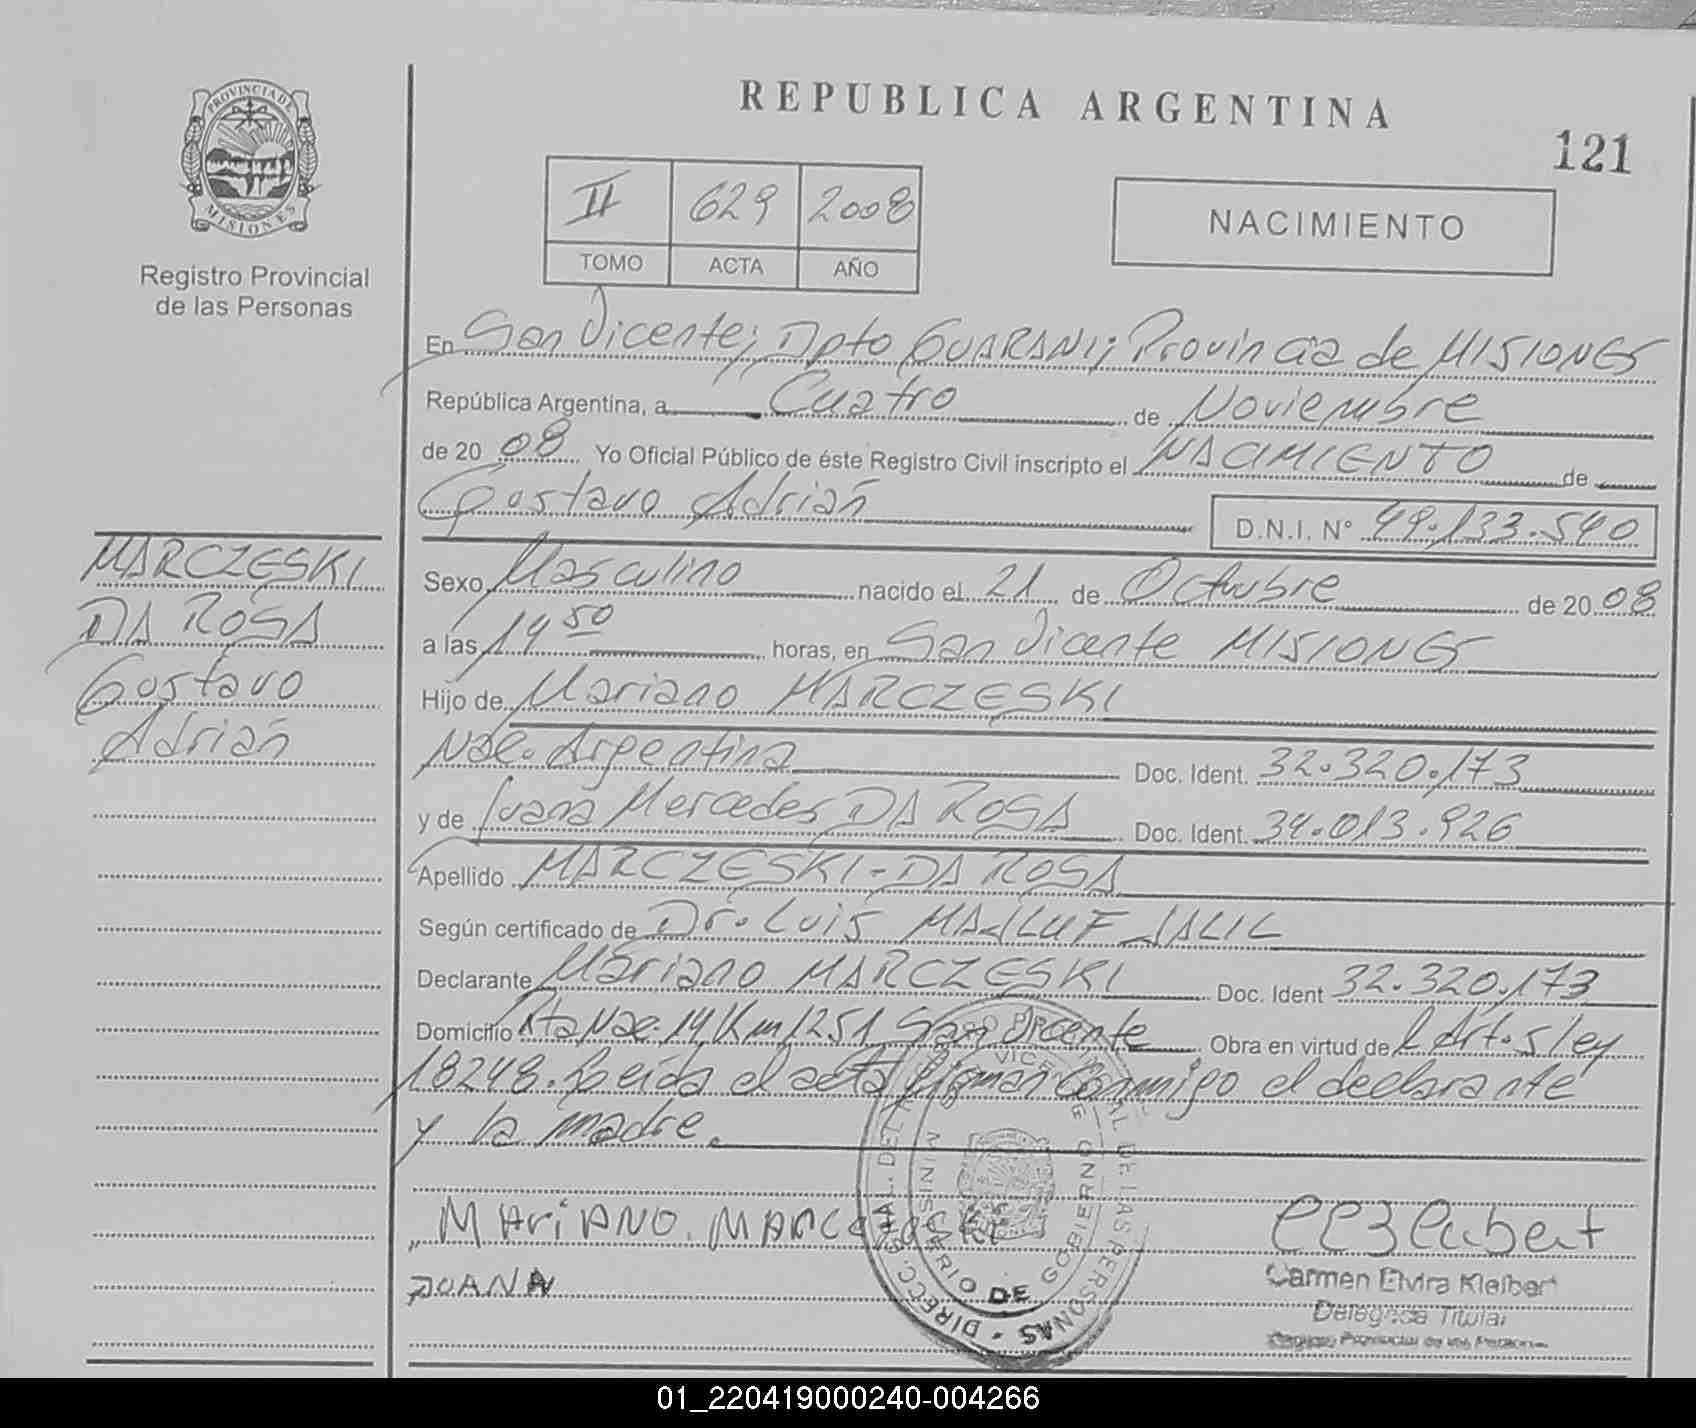 PROVINCIA DE
MISIONES
Registro Provincial
de las Personas
REPUBLICA ARGENTINA
121
II 629 2008
TOMO ACTA AÑO
NACIMIENTO
En San Vicente; Dpto GUARANI; Provincia de MISIONES
República Argentina, a Cuatro de Noviembre
de 20 08 Yo Oficial Público de éste Registro Civil inscripto el NACIMIENTO de
Gustavo Adrián
D.N.I. N° 49.133.540
MARCZESKI
DA ROSA
Gustavo
Adrián
Sexo Masculino nacido el 21 de Octubre de 20 08
a las 14 50 horas, en San Vicente MISIONES
Hijo de Mariano MARCZESKI
Nac. Argentina Doc. Ident. 32.320.173
y de Juana Mercedes DA ROSA Doc. Ident. 34.013.926
Apellido MARCZESKI - DA ROSA
Según certificado de Dr. Luis MAJLUF JALIL
Declarante Mariano MARCZESKI Doc. Ident 32.320.173
Domicilio Rta Nac. 14 Km 1251 San Vicente Obra en virtud de l Art. 5 ley
18248. Leída el acta firman conmigo el declarante
y la madre.
MARiANO. MARCZESKI
JUANA
Carmen Elvira Kleibert
Delegada Titular
Registro Provincial de las Personas
MINISTERIO DE GOBIERNO
01_220419000240-004266